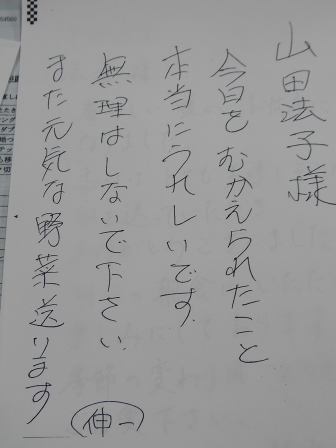 山田法子様
今日を むかえられたこと
本当にうれしいです
無理はしないで下さい
また元気な野菜送ります
伸一